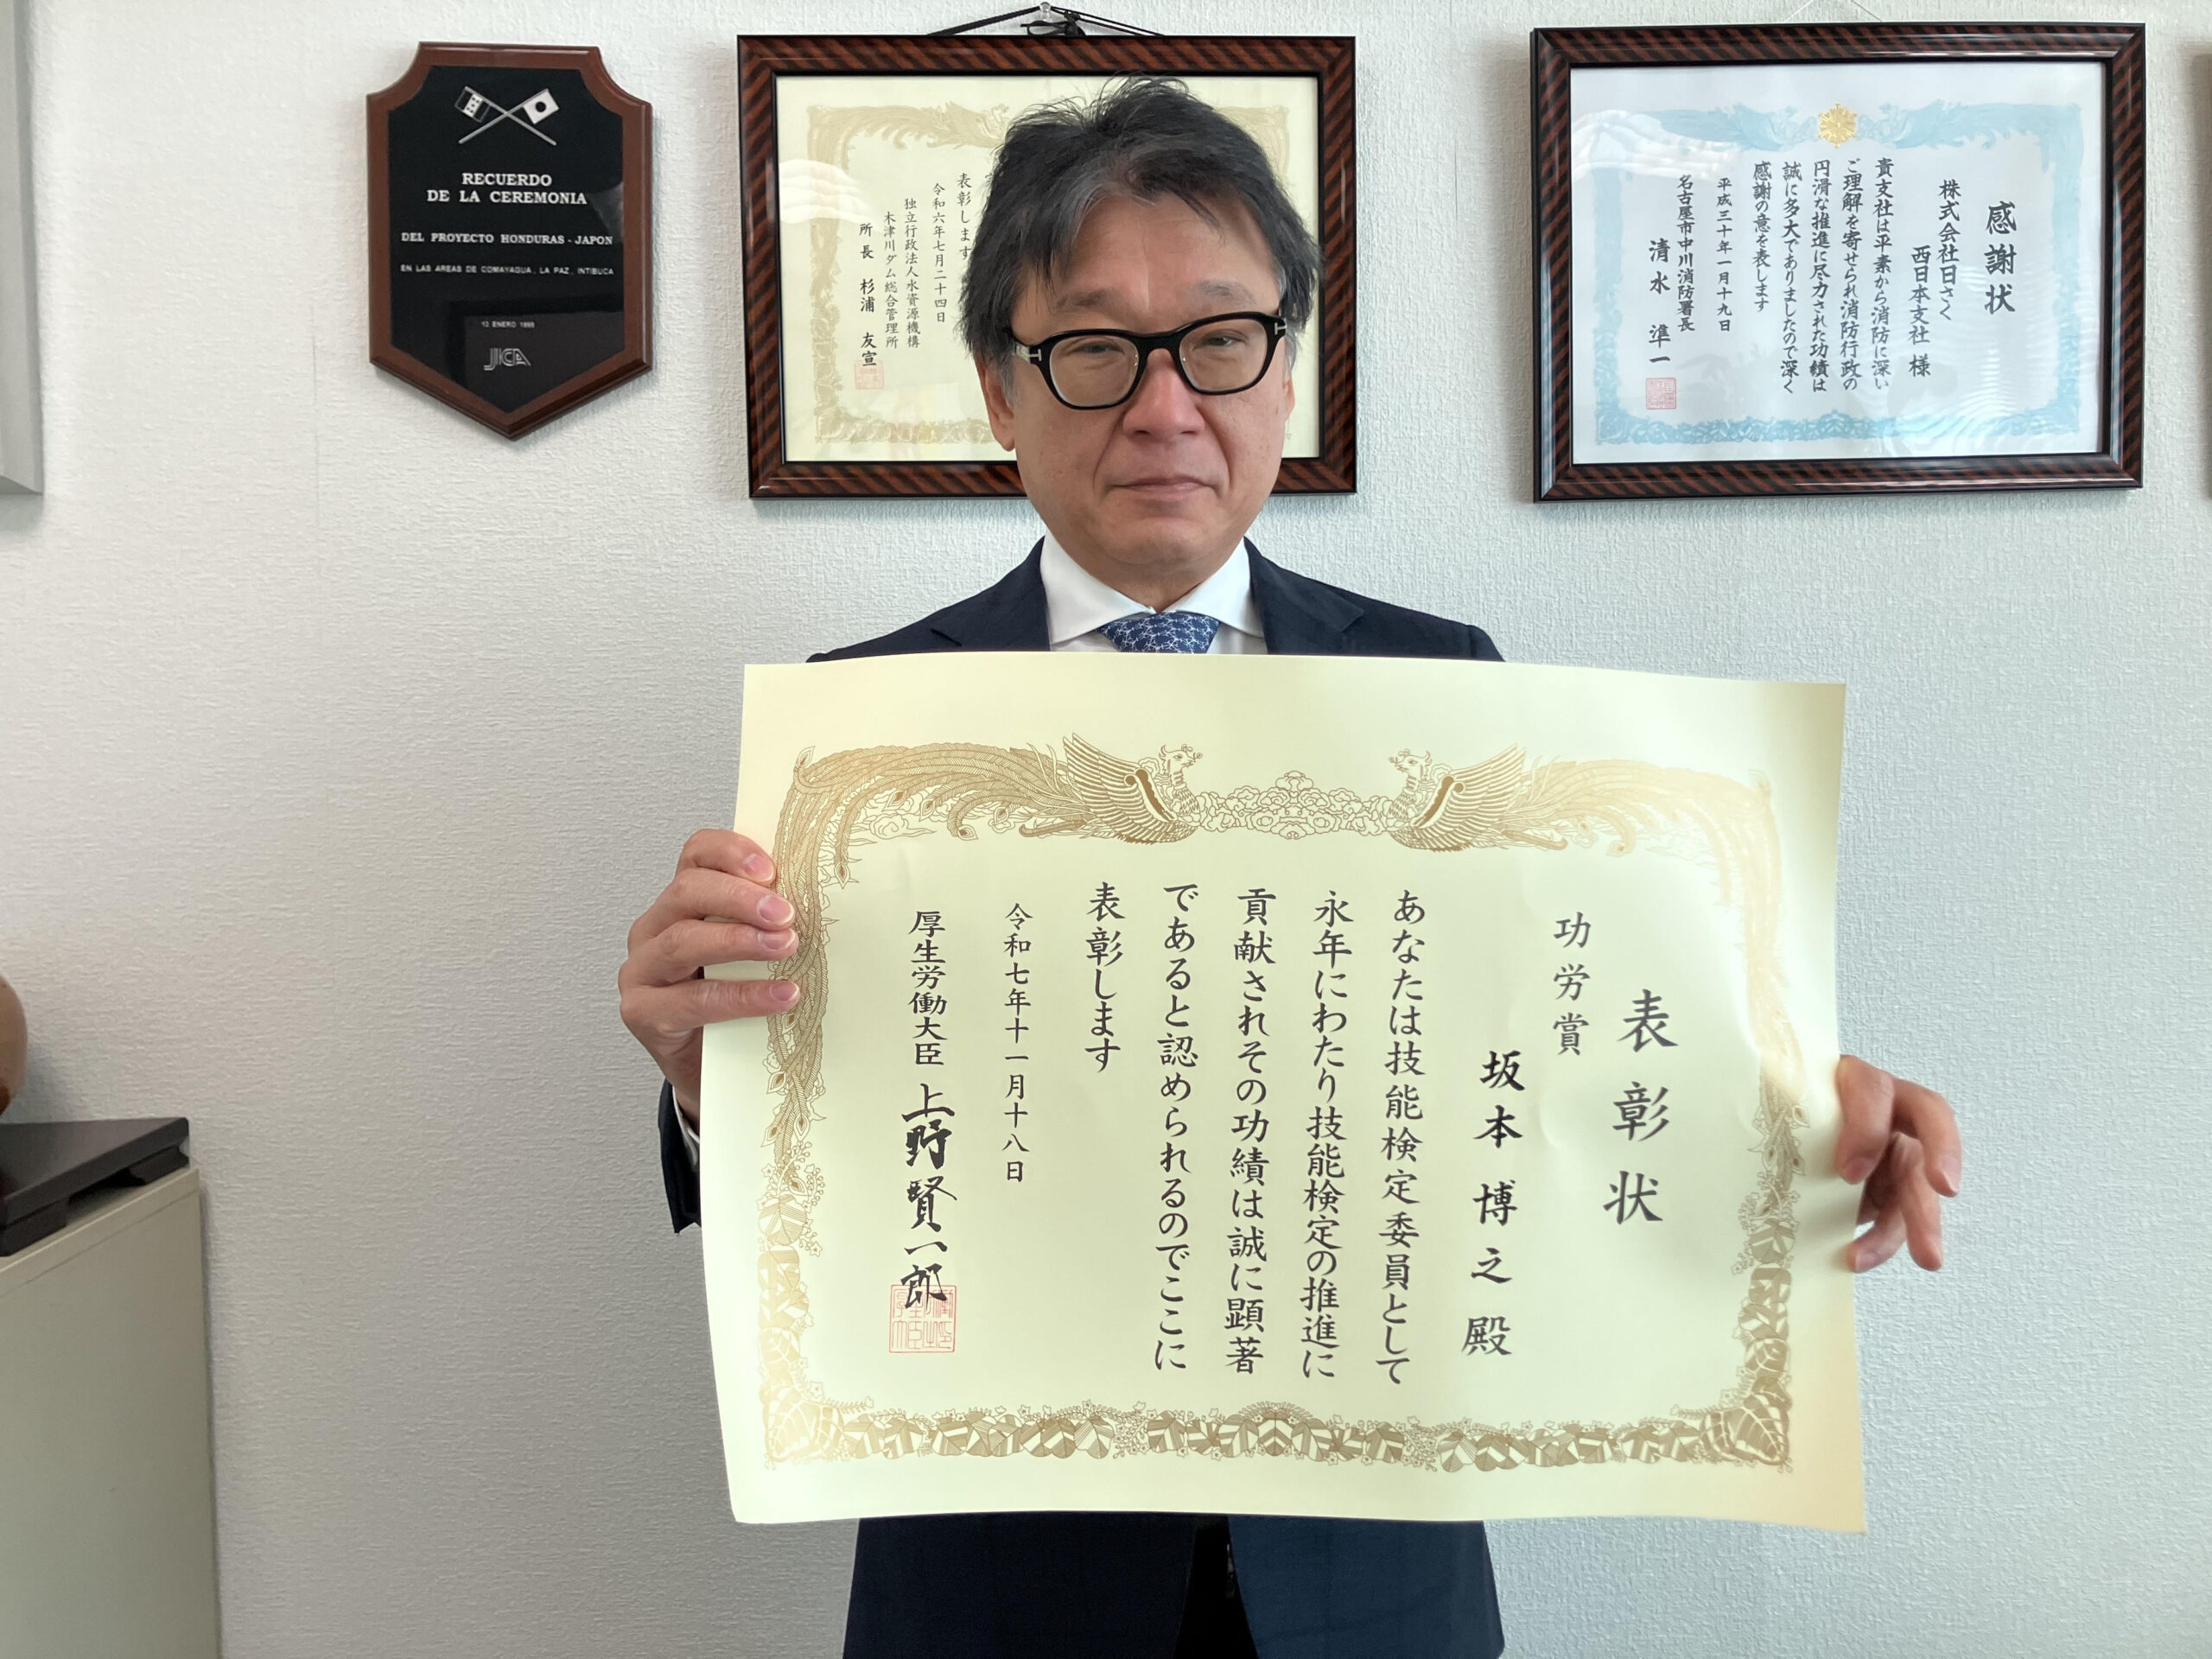 RECUERDO
DE LA CEREMONIA
DEL PROYECTO HONDURAS - JAPON
EN LAS AREAS DE COMAYAGUA, LA PAZ, INTIBUCA
JICA
表彰します
令和六年七月二十四日
独立行政法人水資源機構
木津川ダム総合管理所
所長 杉浦 友宣
感謝状
株式会社日さく
西日本支社 様
貴支社は平素から消防に深い
ご理解を寄せられ消防行政の
円滑な推進に尽力された功績は
誠に多大でありましたので深く
感謝の意を表します
平成三十年一月十九日
名古屋市中川消防署長
清水 準一
表彰状
功労賞
坂本博之殿
あなたは技能検定委員として
永年にわたり技能検定の推進に
貢献されその功績は誠に顕著
であると認められるのでここに
表彰します
令和七年十一月十八日
厚生労働大臣 上野賢一郎